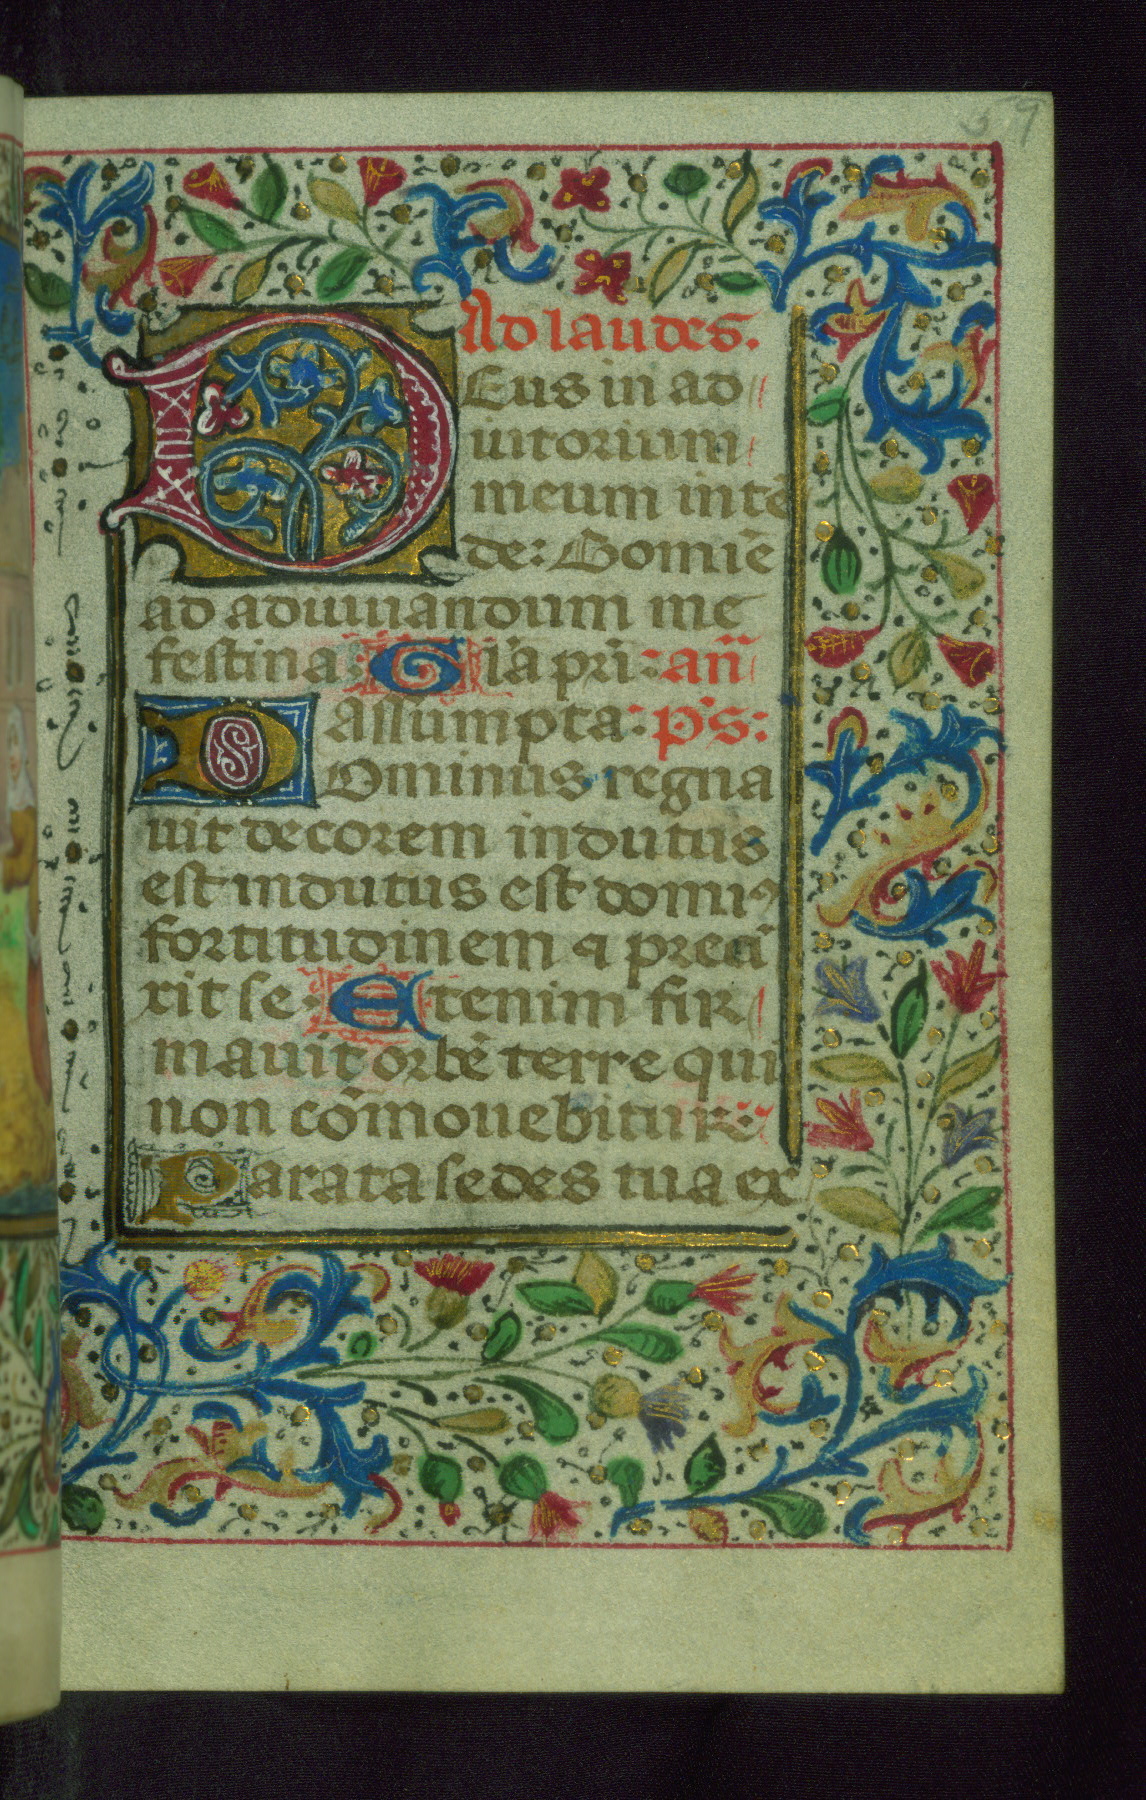 59
Ad laudes.
Eus in ad
iutorium
meum intē
de: Domīe
ad adiuuandum me
festina: Gl̄a pri: an̄
assumpta: ps:
Dominus regna
uit decorem indutus
est indutus est domi
fortitudinem et preci
xit se: Etenim fir
mauit orbē terre qui
non cōmouebitur:
Parata sedes tua ex